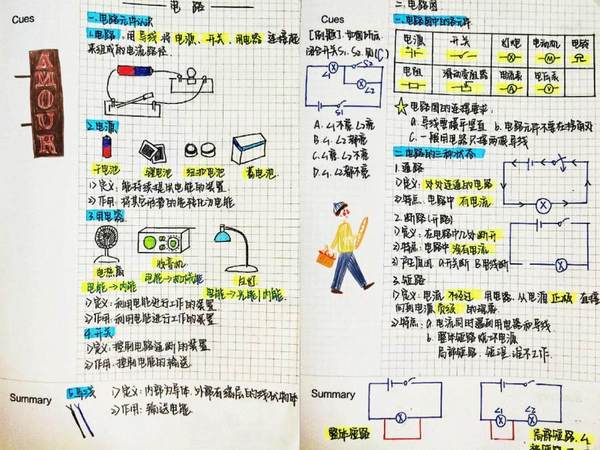 电路
Cues
一.电路元件认识
1.电路:用导线将电源、开关、用电器连接起
来组成的电流路径
AMOUR
2.电源
干电池
锂电池
纽扣电池
蓄电池
1)定义:能持续提供电能的装置.
2)作用:将其它形式的能转化为电能
3.用电器
电风扇
收音机
台灯
电能→动能
电能→光能、内能.
1)定义:利用电能进行工作的装置
2)作用:利用电能进行工作的装置
4.开关
1)定义:控制电路通断的装置
2)作用:控制电能的输送
Summary
5.导线
1)定义:内部为导体.外部有绝缘层的线状物体
2)作用:输送电能
Cues
[例题]:如图所示
闭合开关S1、S2.则(C)
L1
S2
L2
S1
A.L1不亮 L2亮
C.L1亮 L2不亮
二.电路图
一.电路图中的各元件
电源
开关
灯泡
电动机
电铃
电阻
滑动变阻器
电流表
电压表
M
A
V
电路图的连接要求:
a.导线要横平竖直
b.电路元件不要在拐角处
C.一般用电器只接两根导线
二.电路的三种状态
1.通路
1)定义:处处连通的电路
2)特点.电路中有电流
2.断路(开路)
1)定义:在电路中几处断开
2)特点:电路中没有电流
3.短路
1)定义:电流不经过用电器.从电源正极直接
2)特点:
b.整体短路烧坏电源
Summary
整体短路
L1
L2
局部短路.L1